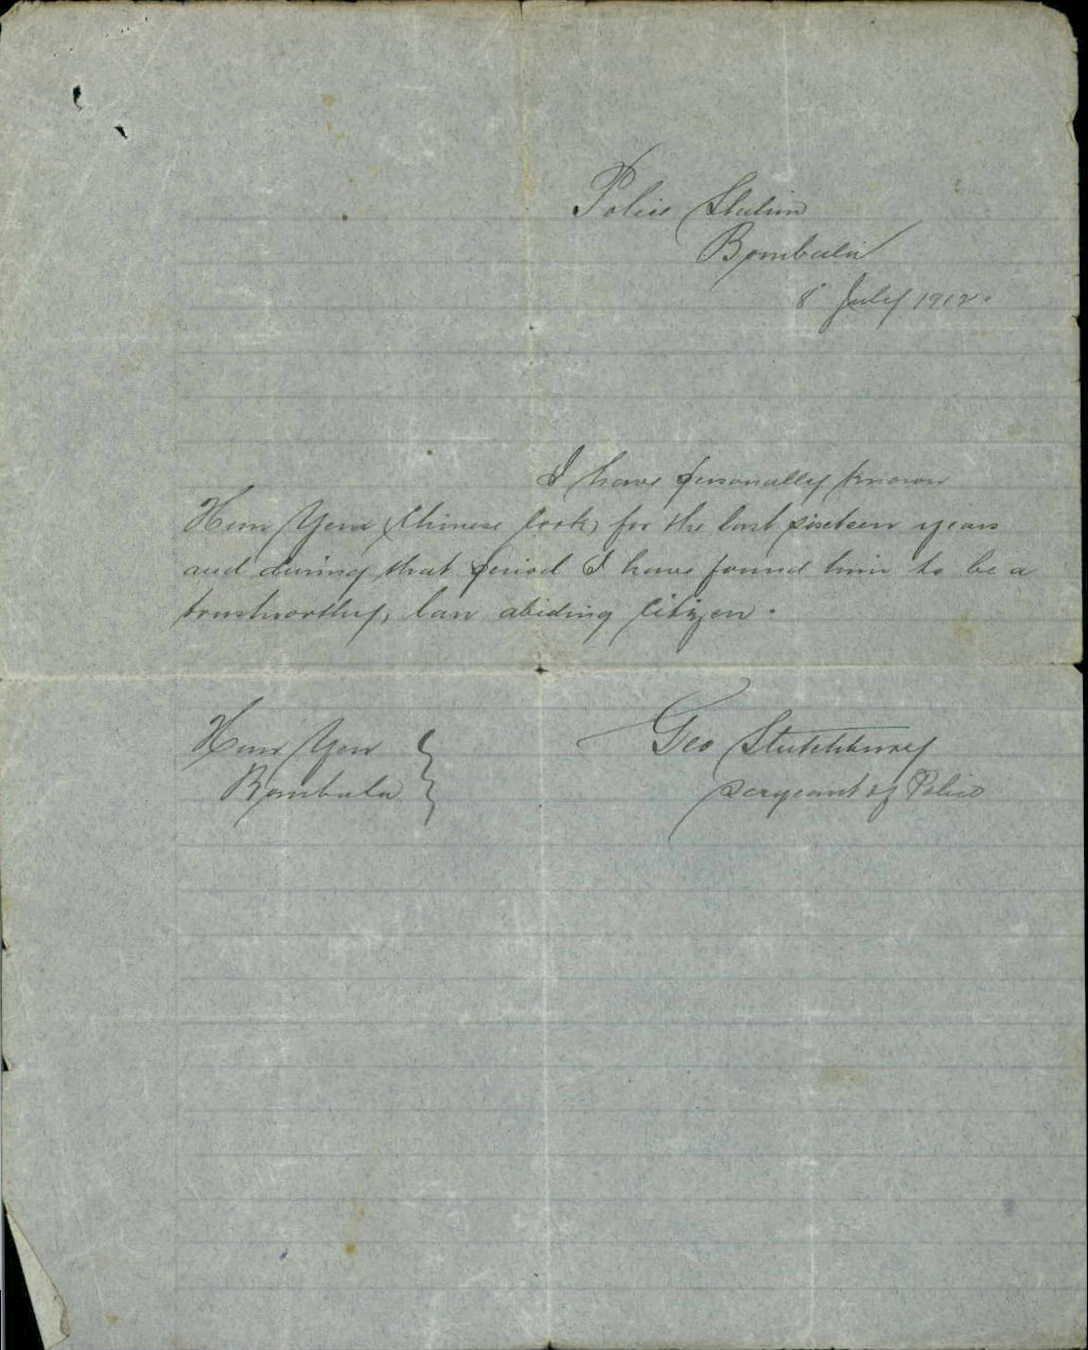 Police Station
Bombala
8 July 1912.
I have personally known
Hum Yow (Chinese Cook) for the last sixteen years
and during that period I have found him to be a
trustworthy, law abiding Citizen.
Hum Yow
Bombala
Geo Stutchbury
Sergeant of Police